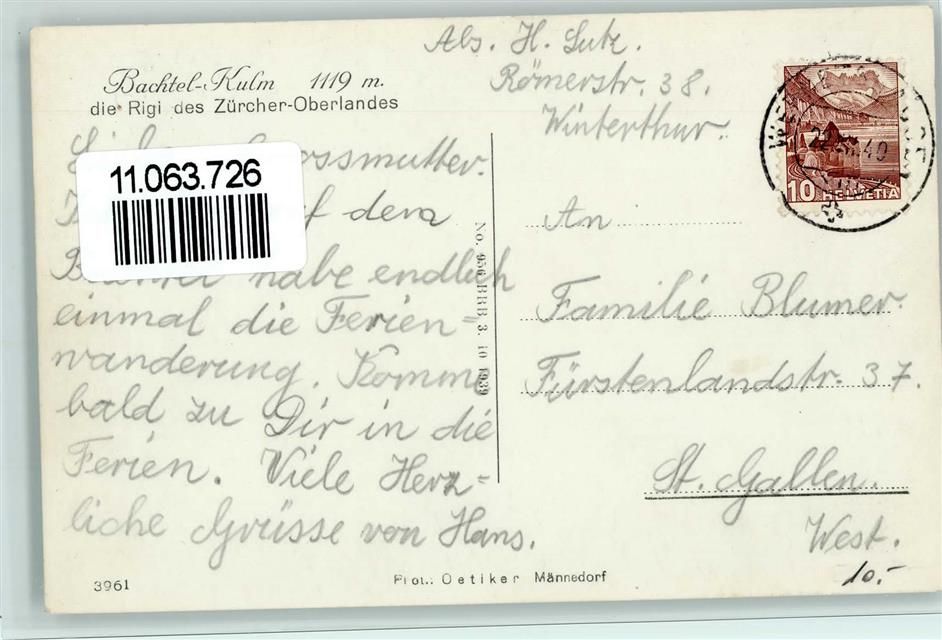 Bachtel-Kulm 1119 m.
die Rigi des Zürcher-Oberlandes
Abs. H. Lutz.
Römerstr. 38.
Winterthur.
Grossmutter.
11.063.726
auf dem
habe endlich
einmal die Ferien=
wanderung. Komme
bald zu Dir in die
Ferien. Viele Herz=
liche Grüsse von Hans.
No. 956 BRB 3. 10 1939
10 HELVETIA
An
Familie Blumer.
Fürstenlandstr. 37.
St. Gallen.
West.
10.-
3961
Phot.: Oetiker Männedorf